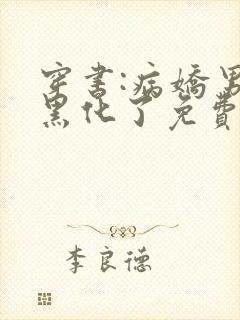 穿书:病嬌男
黑化了免費
李良德